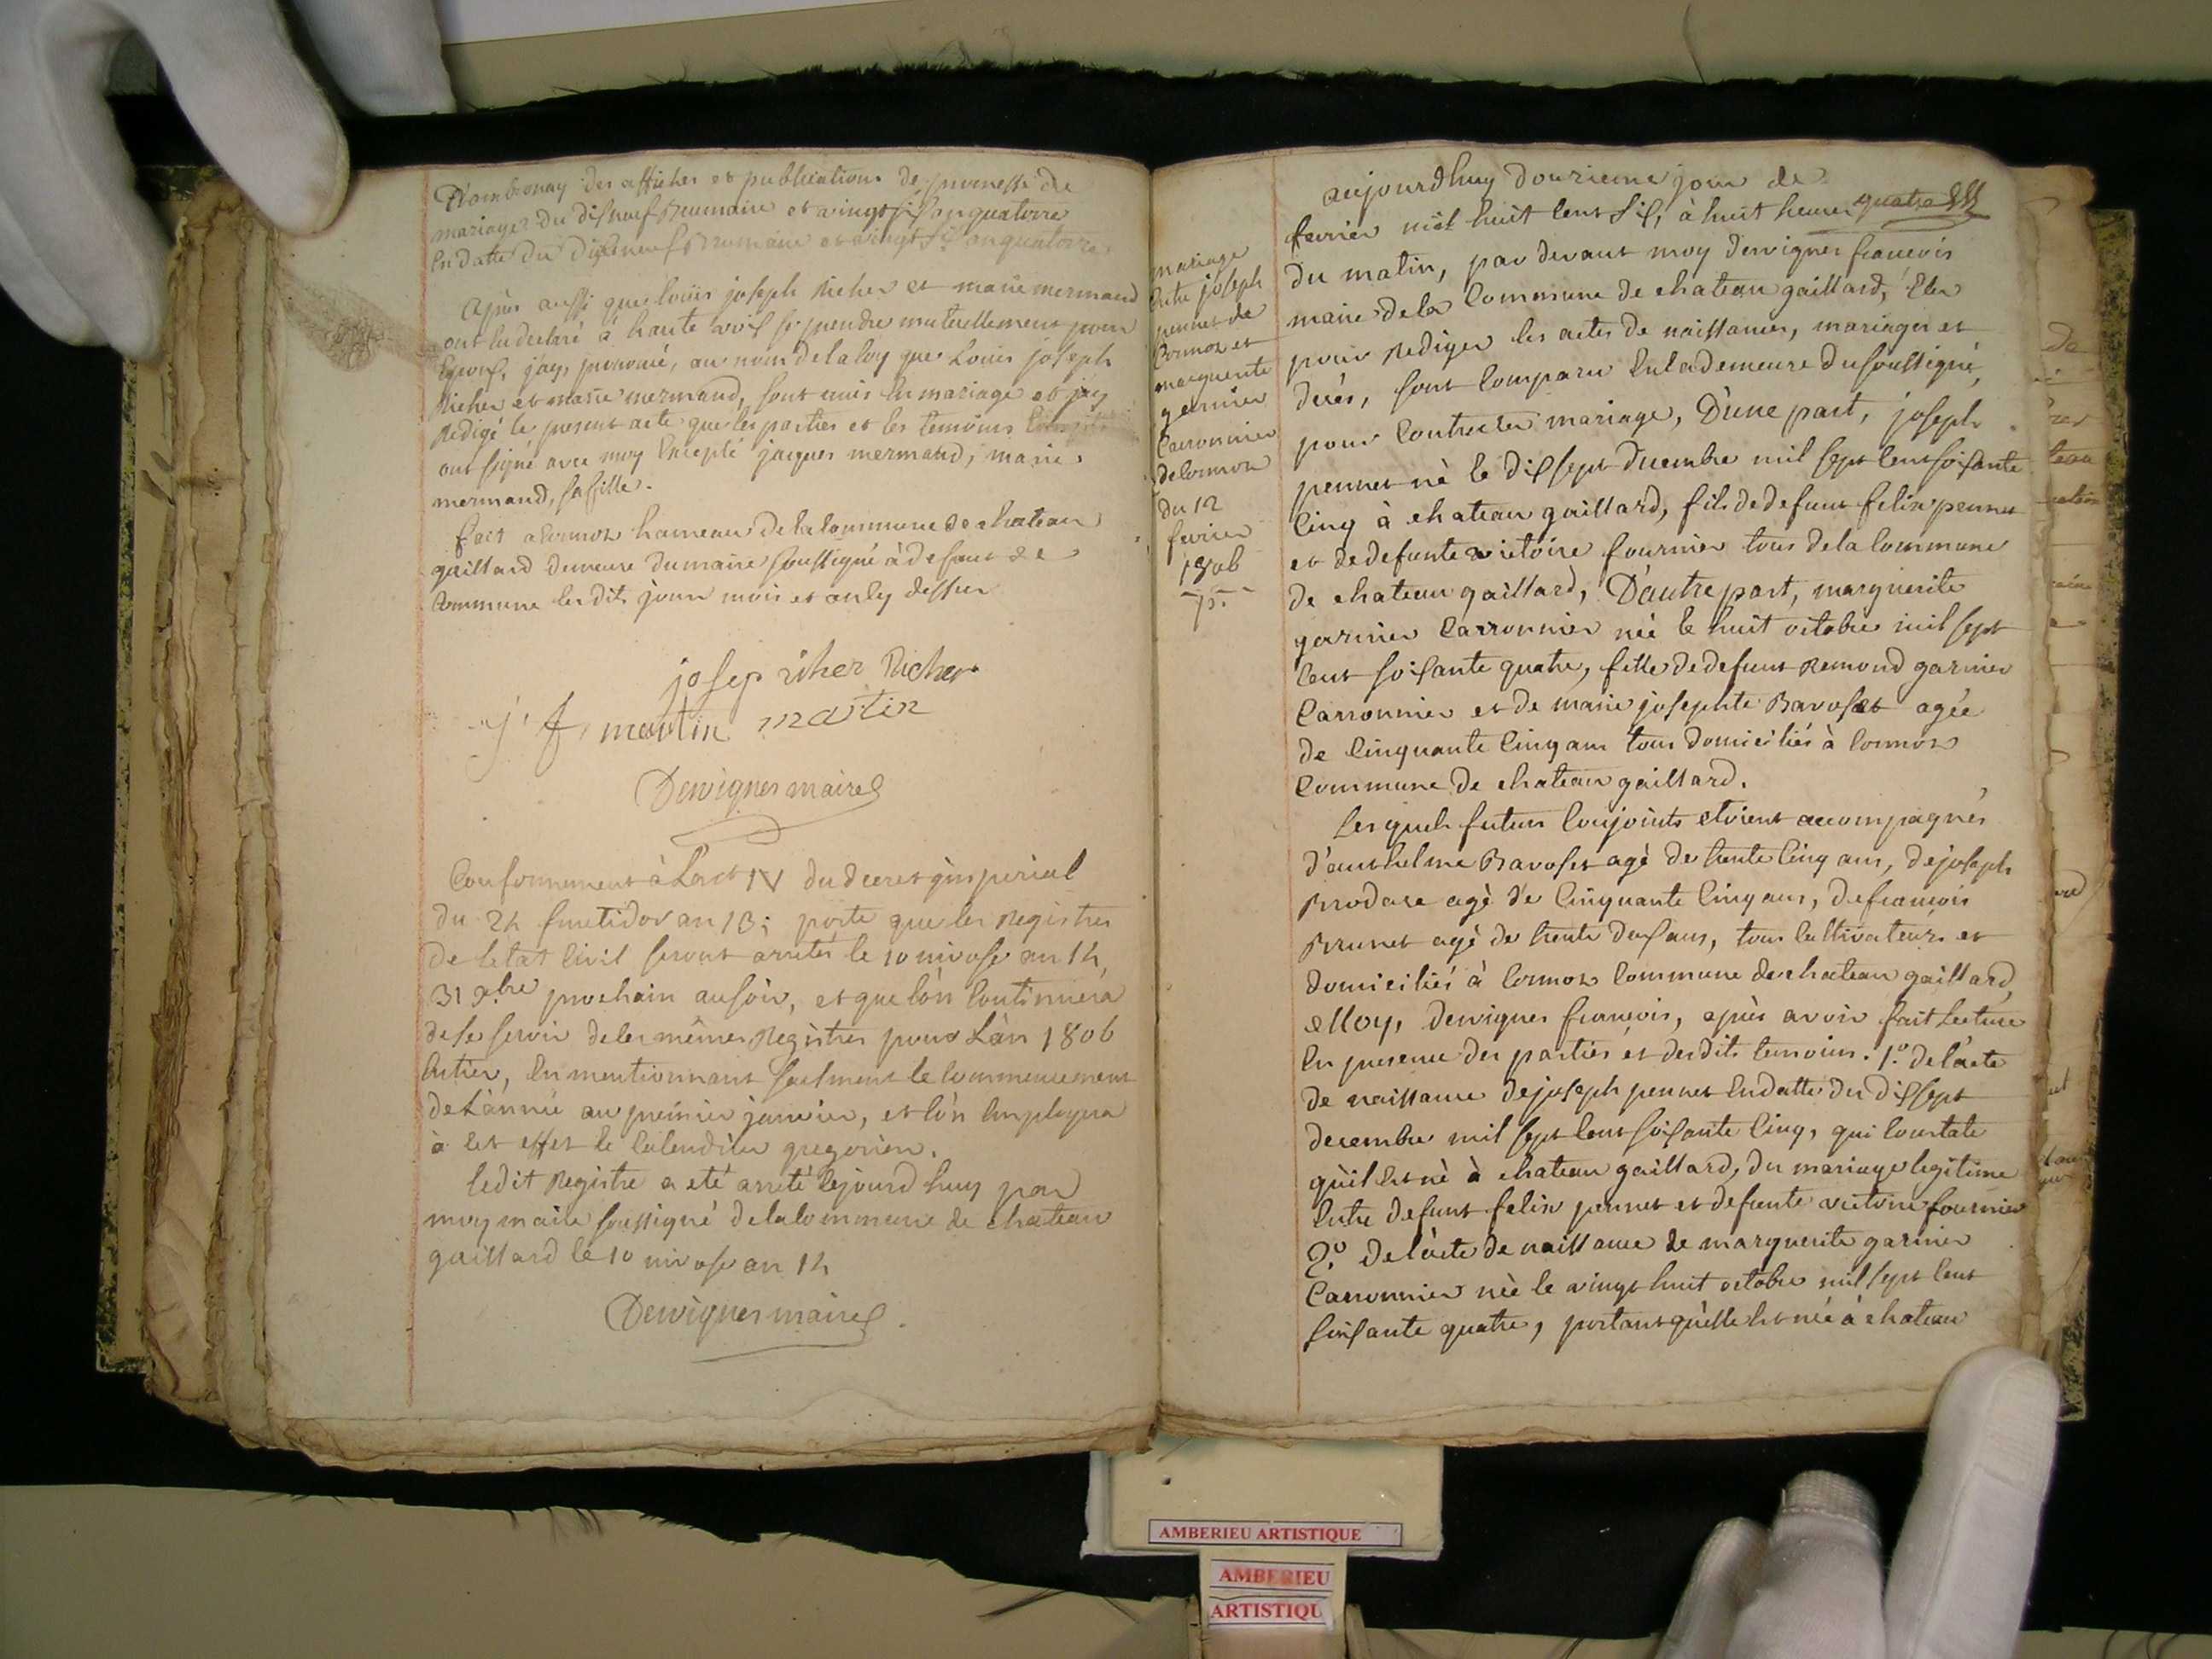 D'ambronay des affiches et publications de promesse de
mariage du disneuf Brumaire et vingt six an quatorze
En datte du dixneuf Brumaire et vingt six an quatorze
après aussi que louis joseph Richer et marie mermand
ont eu declaré à haute voix se prendre mutuellement pour
Epoux, j'ay prononcé, au nom de la loy que Louis joseph
Richer et marie mermand, sont unis en mariage et j'ay
Redigé le present acte que les parties et les temoins
ont signé avec moy Excepté jacques mermand, marie
mermand, sa fille.
fait a Cormoz hameau de la Commune de chateau
gaillard demeure du maire soussigné à defaut de
Commune les dits jour mois et an cy dessus
josep riher Richer
j. f. martin martin
Dervignes maire
Conformement à L'art IV du decret imperial
du 24 fructidor an 13; porte que les Registres
de letat Civil seront arretés le 10 nivose an 14,
31 xbre prochain au soir, et que l'on Continuera
de se servir de ces mêmes Registres pour L'an 1806
Entier, En mentionnant seulment le Commencement
de L'année au premier janvier, et l'on Employera
à cet effet le Calendrier gregorien.
Ledit Registre a eté arreté Cejourd'huy par
moy maire soussigné de la Commune de chateau
gaillard le 10 nivose an 14
Dervignes maire
mariage
Entre joseph
pennet de
Cormoz et
marguerite
garnier
Carronnier
de Cormoz
du 12
fevrier
1806
aujourdhuy douzieme jour de
fevrier mil huit Cent six, à huit heures quatre
du matin, par devant moy Dervignes francois
maire de la Commune de chateau gaillard, Elu
pour Rediger les actes de naissances, mariages et
decés, sont Comparu En la demeure du soussigné,
pour Contracter mariage, D'une part, joseph
pennet né le dix sept decembre mil sept Cent soixante
Cinq à chateau gaillard, fils de defunt felix pennet
et de defunte victoire fournier tous de la Commune
de chateau gaillard, D'autre part, marguerite
garnier Carronnier née le huit octobre mil sept
Cent soixante quatre, fille de defunt Remond garnier
Carronnier et de marie josephte Bavoset agée
de Cinquante Cinq ans tous domiciliés à Cormoz
Commune de chateau gaillard.
Les quels futurs Conjoints etoient accompagnés
d'anthelme Bavoset agé de trente Cinq ans, de joseph
Brodase agé de Cinquante Cinq ans, de francois
Brunet agé de trente deux ans, tous Cultivateurs et
domiciliés à Cormoz Commune de chateau gaillard,
Moy, Dervignes francois, après avoir fait lecture
En presence des parties et desdits temoins. 1.° de l'acte
de naissance de joseph pennet En datte du dix sept
decembre mil sept Cent soixante Cinq, qui Constate
qu'il Est né à chateau gaillard, du mariage legitime
Entre defunt felix pennet et defunte victoire fournier
2.° de l'acte de naissance de marguerite garnier
Carronnier née le vingt huit octobre mil sept Cent
soixante quatre, portant qu'elle Est née à chateau
AMBERIEU ARTISTIQUE
AMBERIEU
ARTISTIQU